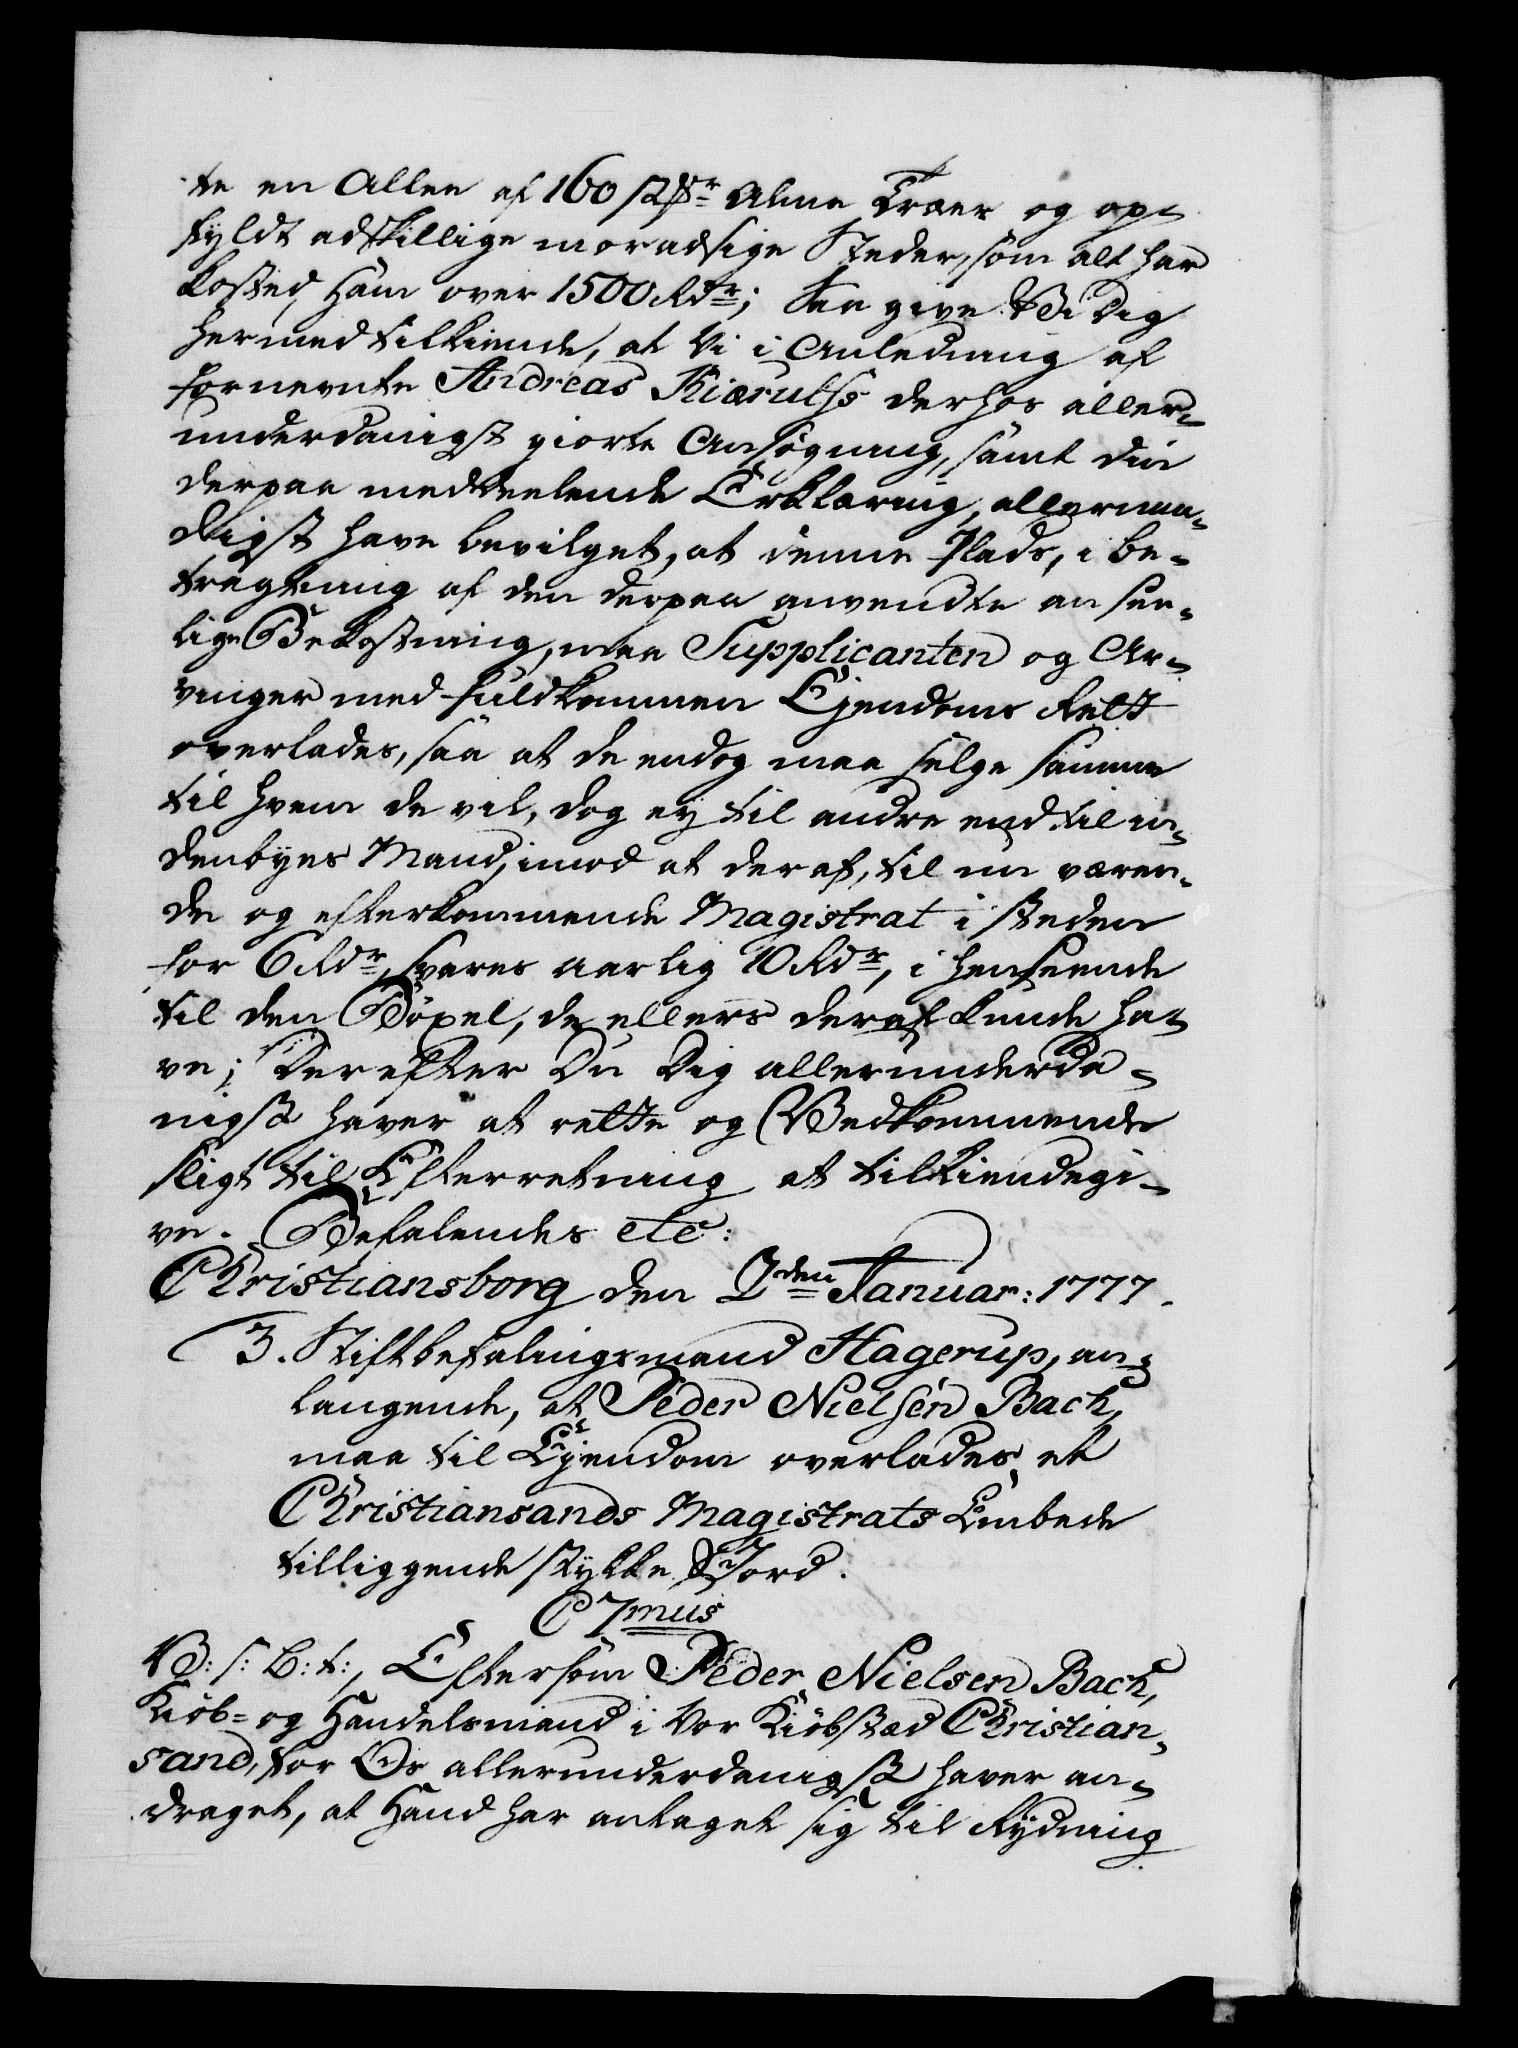 te en Allee af 160 Stkr Alme Træer og op-
fyldt adskillige moradsige Steder, som alt har
kosted ham over 1500 Rdr; Saa give Vi Dig
hermed tilkiende, at Vi i Anledning af
fornevnte Andreas Kiærulfs derhos aller-
underdanigst giorte Ansøgning, samt din
derpaa meddeelende Erklæring, allernaa-
digst have bevilget, at denne Plads, i be-
tragtning af den derpaa anvendte ansee-
lige Bekostning, maa Supplicanten og Ar-
vinger med fuldkommen Ejendoms Rett
overlades, saa at de endog maa selge samme
til hvem de vil, dog ej til andre end til in-
denbyes Mænd, imod at deraf, til nu væren-
de og efterkommende Magistrat i steden
for 6 Rdr, svares aarlig 10 Rdr, i henseende
til den Døpel, de ellers deraf kunde ha-
ve; Derefter Du Dig allerunderda-
nigst haver at rette og Vedkommende
sligt til Efterretning at tilkiendegi-
ve. Befalendes etc:
Christiansborg den 2den Januar: 1777.
3. Stiftbefalingsmand Hagerup, an-
langende, at Peder Nielsen Bach,
maa til Ejendom overlades et
Christiansands Magistrats Embede
tilliggende stykke Jord.
C 7mus
V: s: b: t:, Eftersom Peder Nielsen Bach,
Kiøb- og Handelsmand i Vor Kiøbstæd Christian-
sand, for Os allerunderdanigst haver an-
draget, at Hand har antaget sig til Rydning